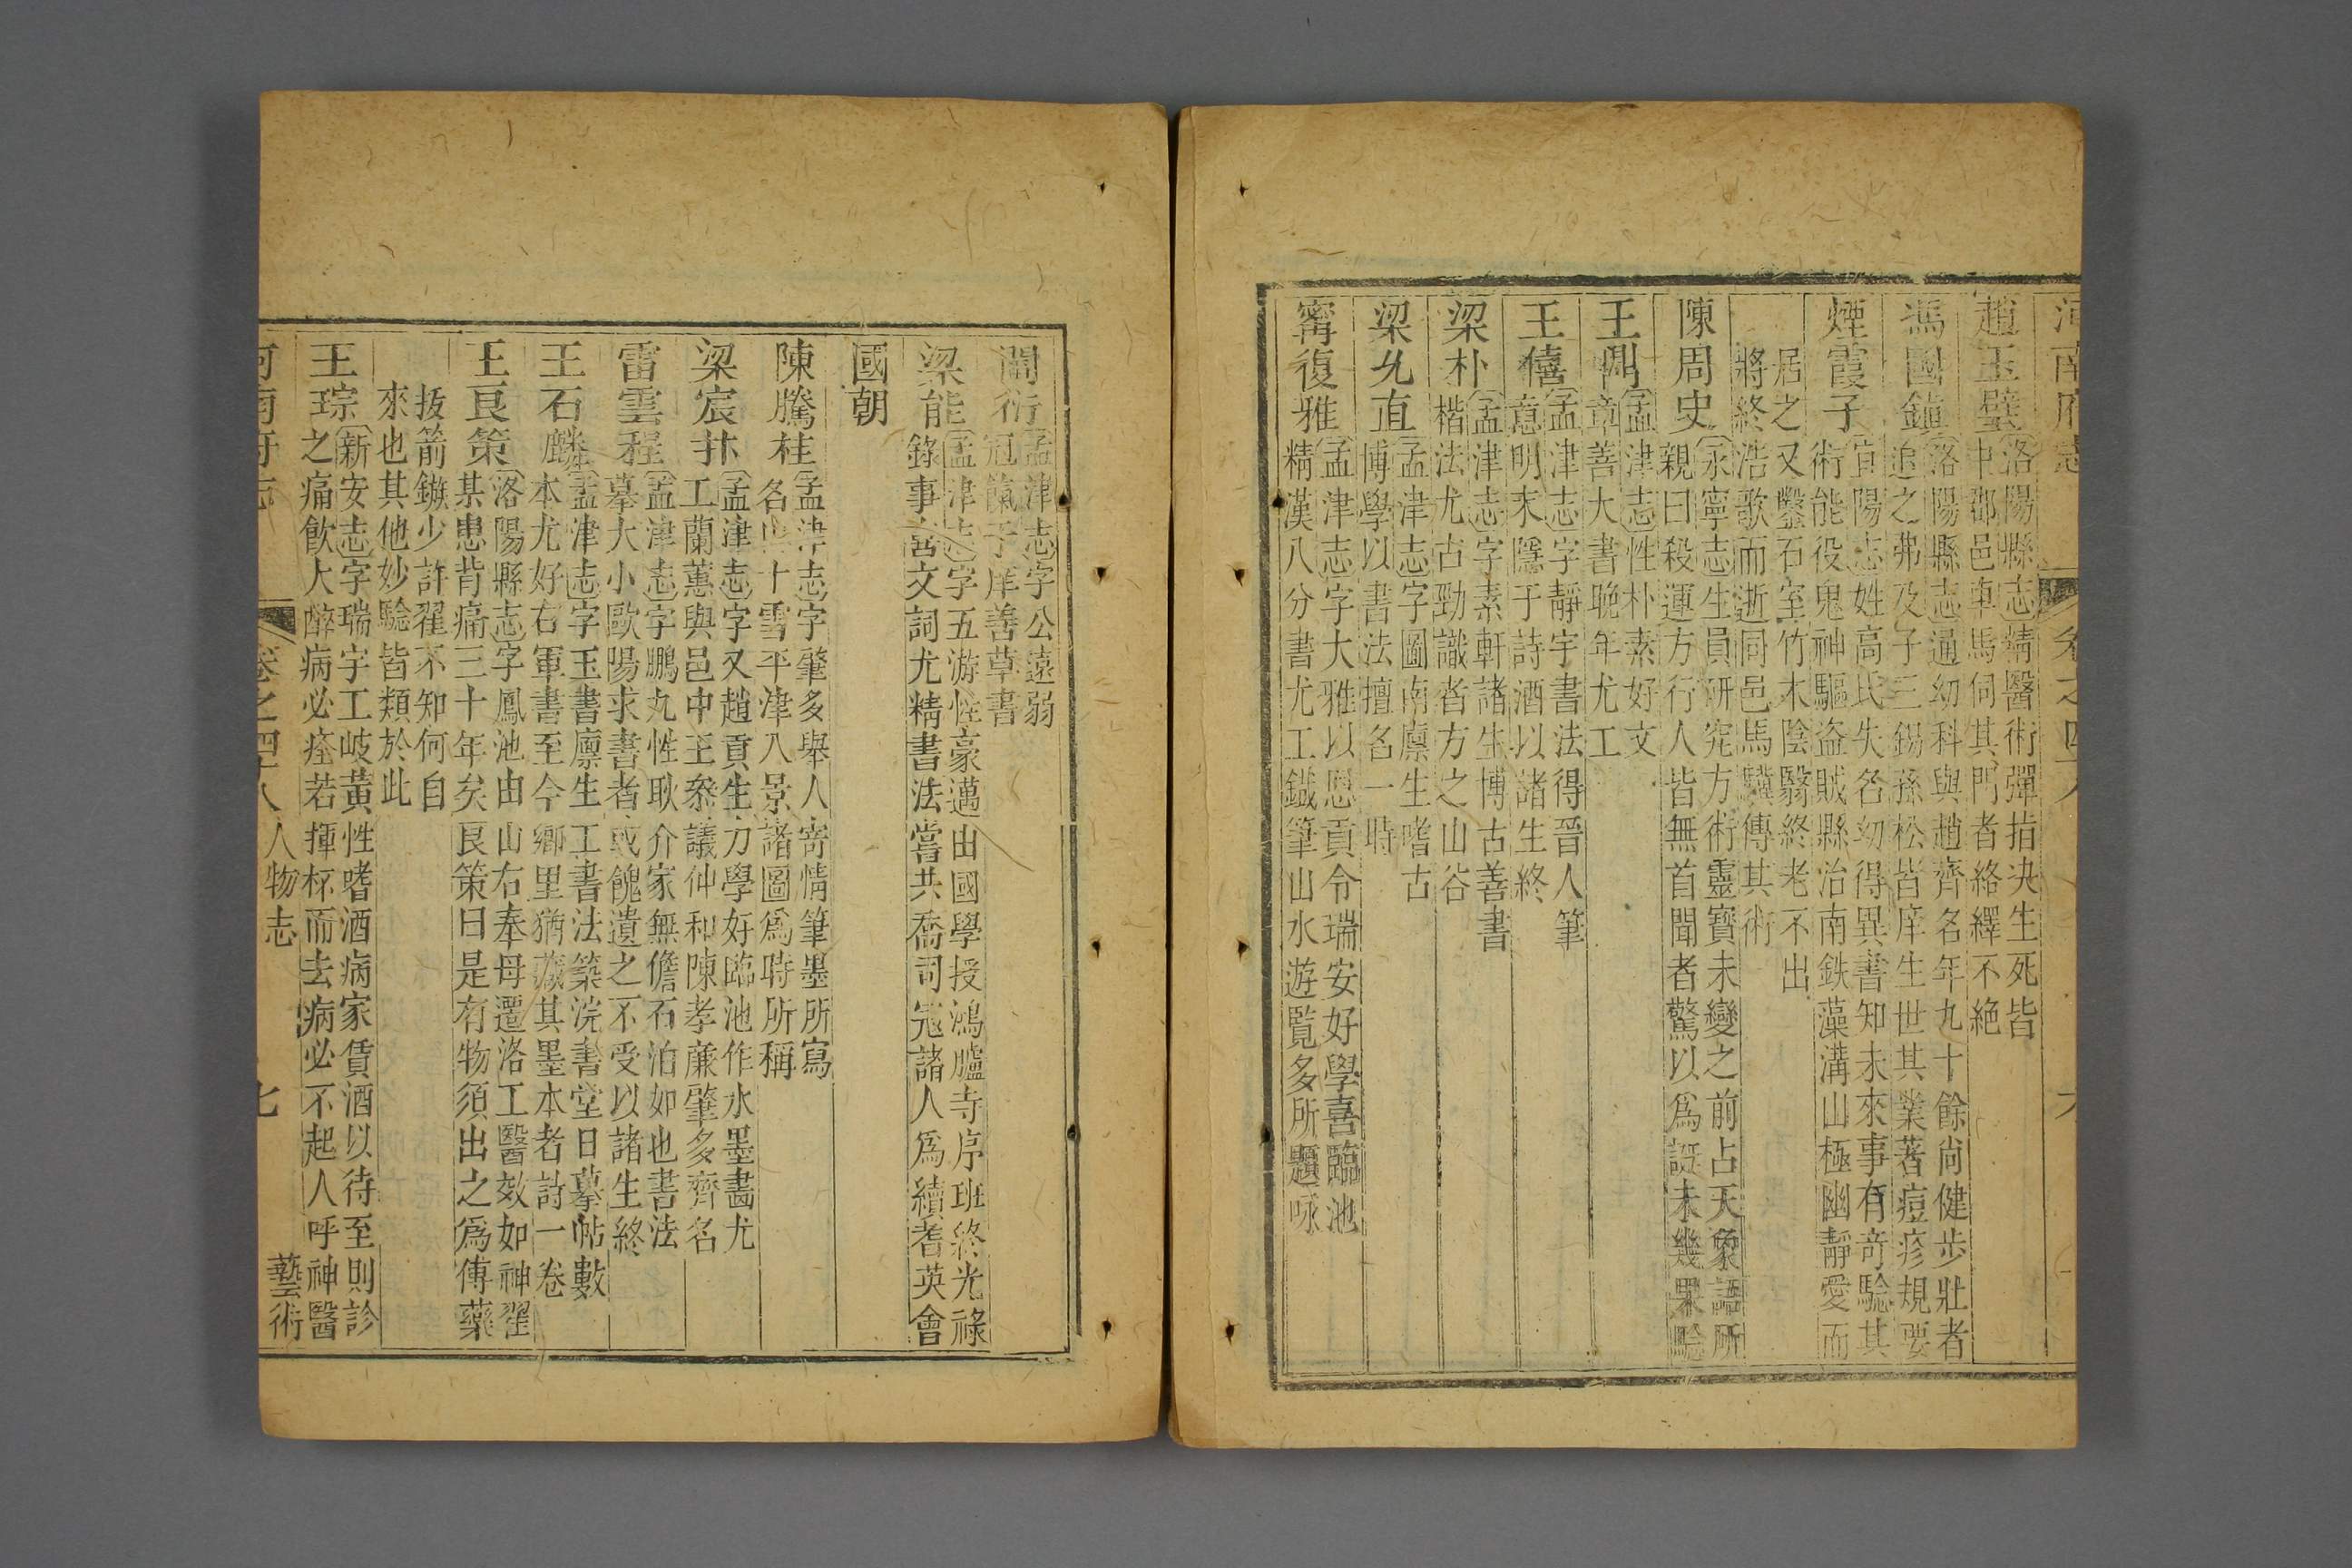 河南府志 卷之四十八 六
趙玉璧 洛陽縣志精醫術彈指決生死皆
中郡邑車馬伺其門者絡繹不絕
馮國鎮 洛陽縣志通幼科與趙齊名年九十餘尚健步壯者
追之弗及子三錫孫松皆庠生世其業著痘疹規要
煙霞子 宜陽志姓高氏失名幼得異書知未來事有竒驗其
術能役鬼神驅盜賊縣治南鉄藻溝山極幽靜愛而
居之又鑿石室竹木陰翳終老不出
將終浩歌而逝同邑馬驥傳其術
陳周史 永寧志生員研究方術靈寶未變之前占天象語所
親曰殺運方行人皆無首聞者驚以爲誕未幾果驗
王 孟津志性朴素好文
章善大書晚年尤工
王僖 孟津志字靜宇書法得晉人筆
意明末隱于詩酒以諸生終
梁朴 孟津志字素軒諸生博古善書
楷法尤古勁識者方之山谷
梁允直 孟津志字圖南廩生嗜古
博學以書法擅名一時
寗復雅 孟津志字大雅以恩貢令瑞安好學喜臨池
精漢八分書尤工鐵筆山水遊覧多所題咏
閻衍 孟津志字公遠弱
冠餼于庠善草書
梁能 孟津志字五游性豪邁由國學授鴻臚寺序班終光祿
錄事善文詞尤精書法嘗共喬司寇諸人爲續耆英會
國朝
陳騰桂 孟津志字肇多舉人寄情筆墨所寫
名山十雪平津八景諸圖爲時所稱
梁宸抃 孟津志字又趙貢生力學好臨池作水墨畵尤
工蘭蕙與邑中王叅議仲和陳孝亷肇多齊名
雷雲程 孟津志字鵬九性耿介家無儋石泊如也書法
摹大小歐陽求書者或餽遺之不受以諸生終
王石麟 孟津志字玉書廪生工書法築浣書堂日摹帖數
本尤好右軍書至今鄉里猶藏其墨本者詩一卷
王艮策 洛陽縣志字鳳池由山右奉母遷洛工醫效如神翟
某患背痛三十年矣艮策曰是有物須出之爲傅藥
拔箭鏃少許翟不知何自
來也其他妙驗皆類於此
王琮 新安志字瑞宇工岐黃性嗜酒病家賃酒以待至則診
之痛飲大醉病必痊若揮杯而去病必不起人呼神醫
河南府志 卷之四十八 人物志 藝術 七